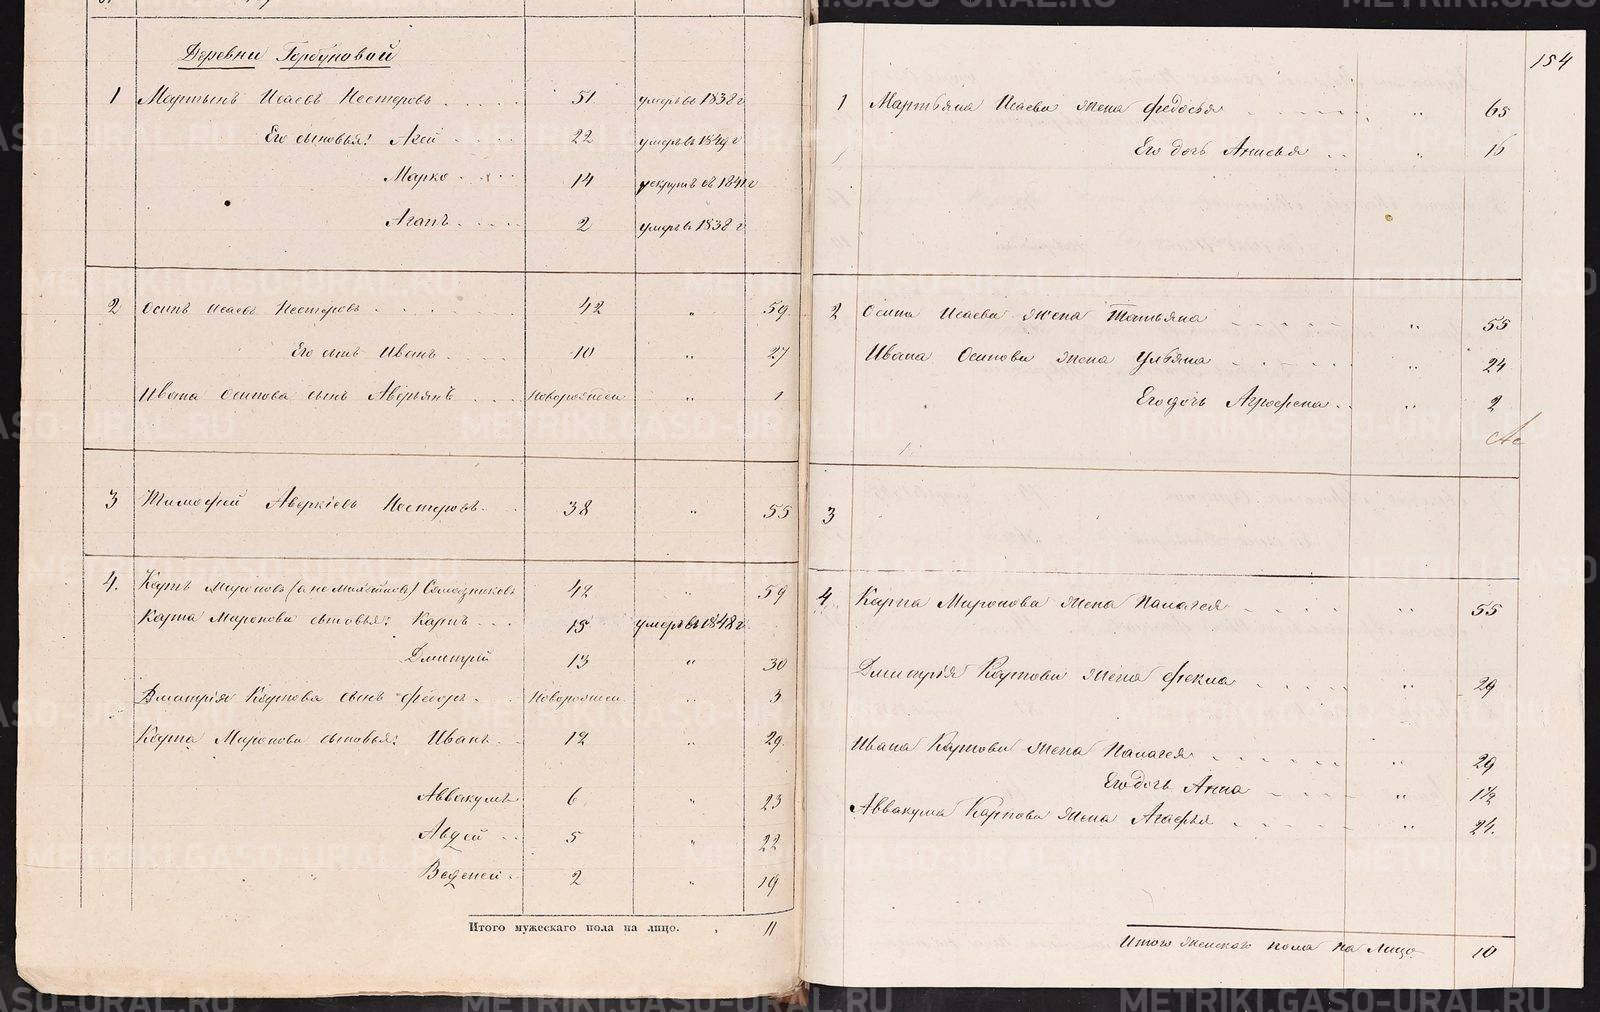 Деревни Горбуновой
1 Мартынъ Исаевъ Нестеровъ 51 умеръ въ 1838 г
Его сыновья: Агей 22 умеръ въ 1849 г
Марко 14 рекрутъ въ 1841 г
Агапъ 2 умеръ въ 1838 г
2 Осипъ Исаевъ Нестеровъ 42 " 59
Его сынъ Иванъ 10 " 27
Ивана Осипова сынъ Аверьянъ Новорожден " 1
3 Тимофей Аверкіевъ Нестеровъ 38 " 55
4. Карпъ Мироновъ (а не Михайловъ) 42 " 59
Карпа Миронова сыновья: Карпъ 15 умеръ въ 1848 г
Дмитрій 13 " 30
Дмитрія Карпова сынъ Федоръ Новорожден " 3
Карпа Миронова сыновья: Иванъ 12 " 29.
Аввакумъ 6 " 23
Авдей 5 " 22
Веденей 2 " 19
Итого мужескаго пола на лицо. 11
154
1 Мартьяна Исаева жена Федосья " 65
Его дочь Анисья " 16
2 Осипа Исаева жена Татьяна " 55
Ивана Осипова жена Ульяна " 24
Его дочь Аграфена " 2
3
4. Карпа Миронова жена Палагея " 55
Дмитрія Карпова жена Фекла " 29
Ивана Карпова жена Палагея " 29
Его дочь Анна " 1½
Аввакума Карпова жена Агафья " 24.
Итого женскаго пола на лицо 10
METRIKI.GASO-URAL.RU